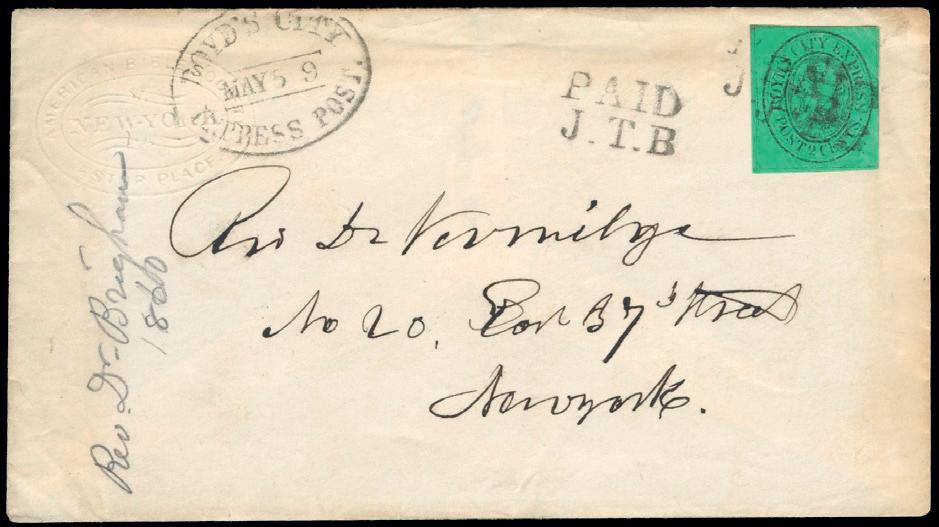 BOYD'S CITY
MAY 5 9
EXPRESS POST.
AMERICAN BIBLE SOCIETY
NEW-YORK
ASTOR PLACE
PAID
J.T.B
J
BOYD'S CITY EXPRESS
POST 2 CENTS.
Rev Dr Vermilye
No 20. East 37 Street
Newyork.
Rev. Dr. Brigham
1860